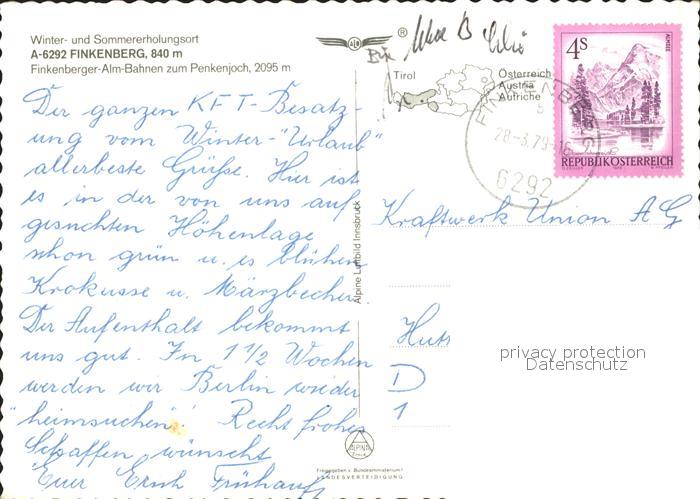 Winter- und Sommererholungsort
A-6292 FINKENBERG, 840 m
Finkenberger-Alm-Bahnen zum Penkenjoch, 2095 m
Der ganzen KFT-Besatz-
ung vom Winter-"Urlaub"
allerbeste Grüße. Hier ist
es in der von uns auf-
gesuchten Höhenlage
schon grün u. es blühen
Krokusse u. Märzbecher.
Der Aufenthalt bekommt
uns gut. In 1 1/2 Wochen
werden wir Berlin wieder
"heimsuchen". Recht frohes
Schaffen wünscht
Euer Erich Frühauf
ALPINA
Freigegeben v. Bundesministerium f.
LANDESVERTEIDIGUNG
Alpine Luftbild Innsbruck
®
Tirol
Österreich
Austria
Autriche
FINKENBERG
28.-3.79-16
6292
4S
ALMSEE
REPUBLIK ÖSTERREICH
Kraftwerk Union AG
Huts
D
1
privacy protection
Datenschutz